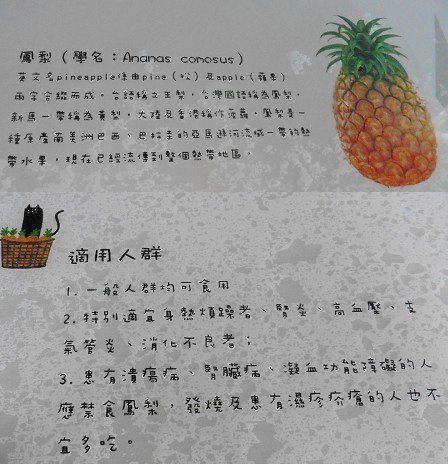 鳳梨（學名：Ananas comosus）
英文名pineapple係由pine（松）及apple（蘋果）
兩字合綴而成。台語稱之王梨，台灣國語稱為鳳梨，
新馬一帶稱為黃梨，大陸及香港稱作菠蘿。鳳梨是一
種原產南美洲巴西、巴拉圭的亞馬遜河流域一帶的熱
帶水果，現在已經流傳到整個熱帶地區。
適用人群
1. 一般人群均可食用
2. 特別適宜身熱煩躁者、腎炎、高血壓、支
氣管炎、消化不良者；
3. 患有潰瘍病、腎臟病、凝血功能障礙的人
應禁食鳳梨，發燒及患有濕疹疥瘡的人也不
宜多吃。